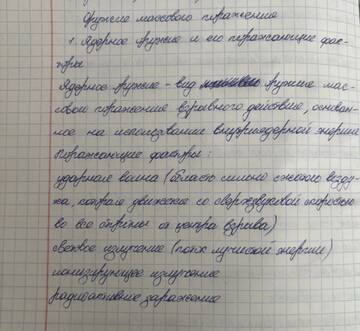 Оружие массового поражения
1. Ядерное оружие и его поражающие фак-
торы
Ядерное оружие - вид оружие мас-
совое поражение взрывного действие, основан-
ное на использование внутриядерной энергии
Поражающие факторы:
ударная волна (область сильно сжатого возду-
ха, которая движение со сверхзвуковой скоростью
во все от центра взрыва)
световое излучение (поток лучистой энергии)
ионизирующее излучение
радиоактивные заражение